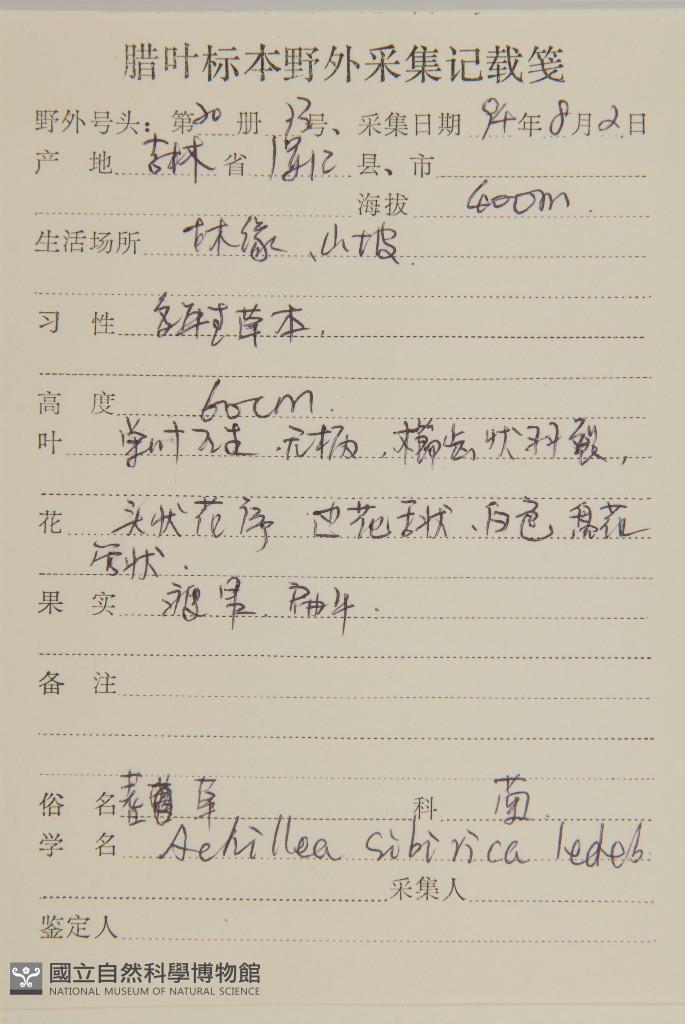 腊叶标本野外采集记载笺
野外号头：第20册 号、采集日期 94年8月2日
产 地 吉林 省 县、市
海拔 600m.
生活场所 林缘、山坡.
习 性 多年生草本.
高 度 60cm.
叶 单叶互生.无柄,栉齿状羽裂,
花 头状花序 边花舌状、白色
管状.
果 实 瘦果.扁平.
备 注
俗 名 蓍草 科 菊
学 名 Achillea sibirica ledeb
采集人
鉴定人
國立自然科學博物館
NATIONAL MUSEUM OF NATURAL SCIENCE